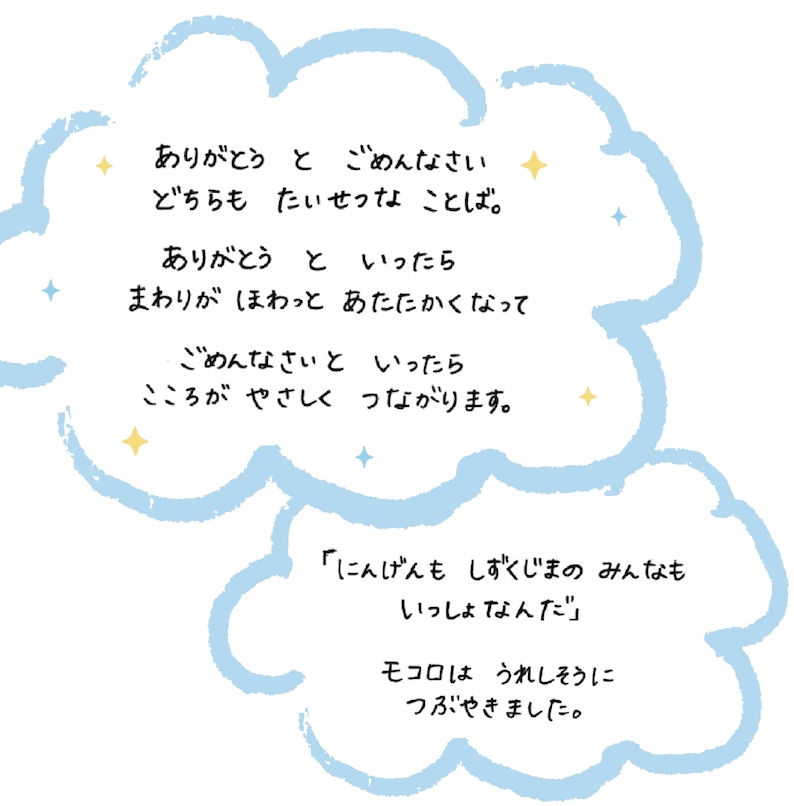 ありがとう と ごめんなさい
どちらも たいせつな ことば。
ありがとう と いったら
まわりが ほわっと あたたかくなって
ごめんなさいと いったら
こころが やさしく つながります。
「にんげんも しずくじまの みんなも
いっしょなんだ」
モコロは うれしそうに
つぶやきました。